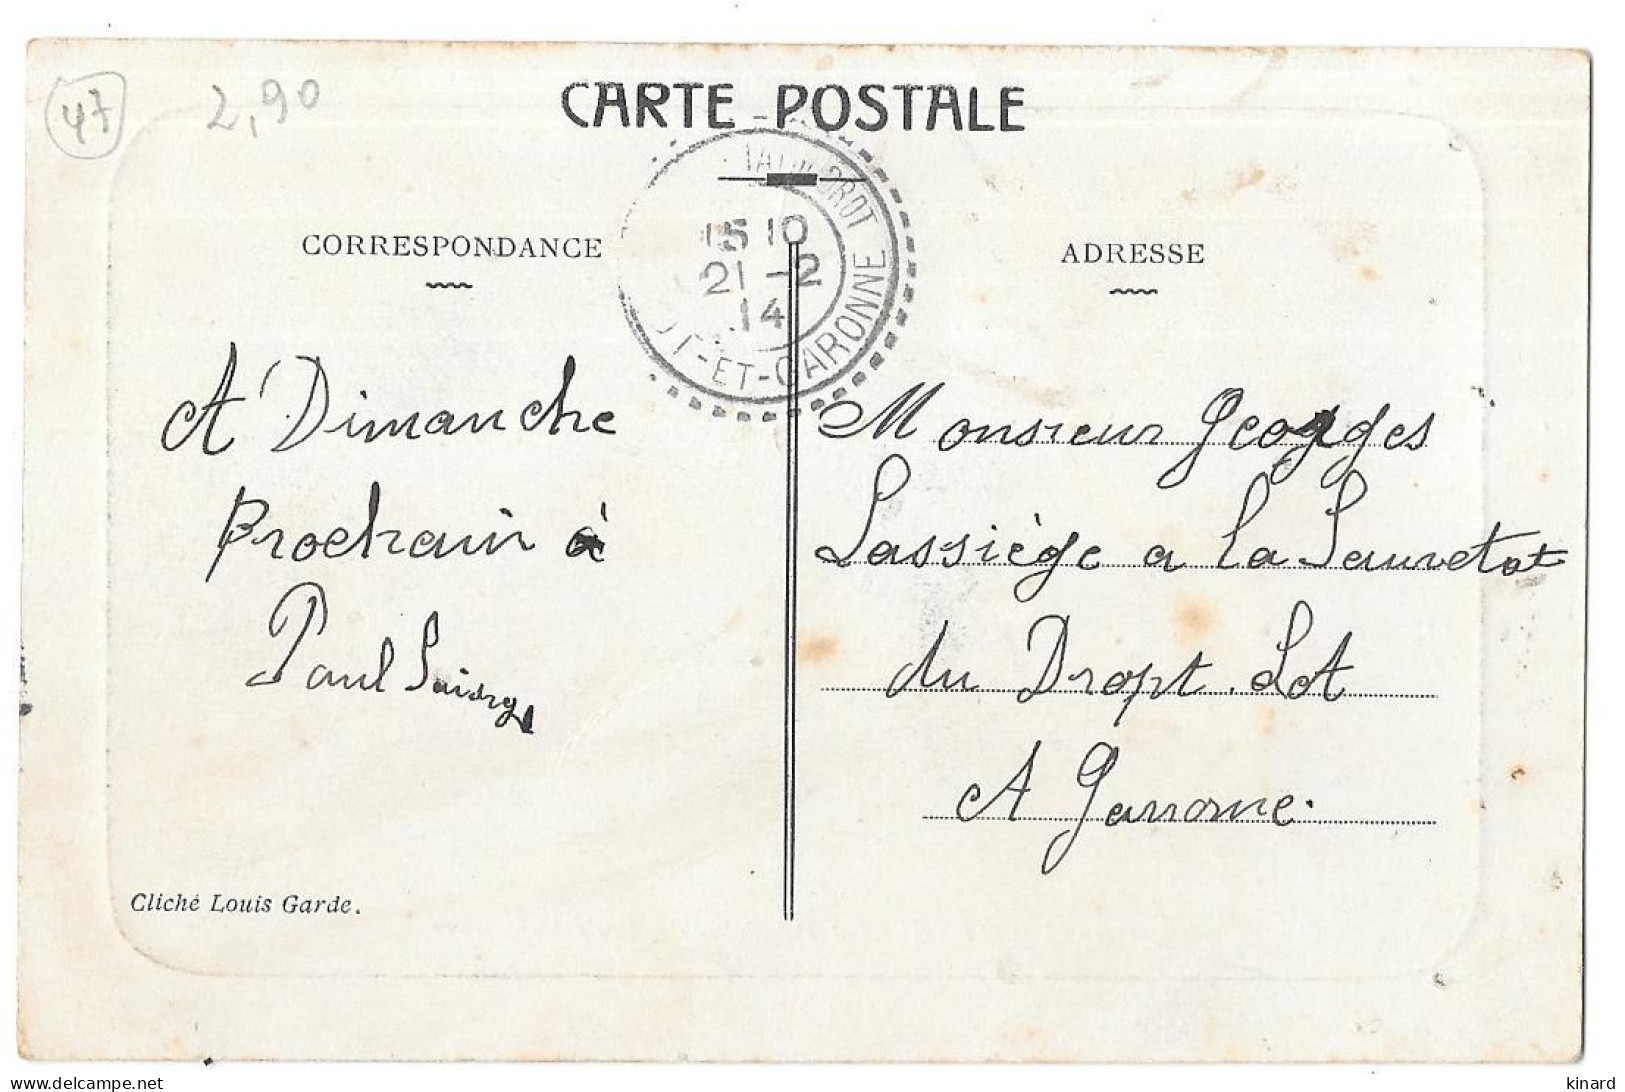 47
2,90
CARTE POSTALE
15 10
21 - 2
14
-ET-GARONNE
CORRESPONDANCE
ADRESSE
A Dimanche
Prochain à
Paul
Monsieur Georges
Lassiège a la Sauvetat
du Dropt. Lot
A Garonne.
Cliché Louis Garde.
kinard